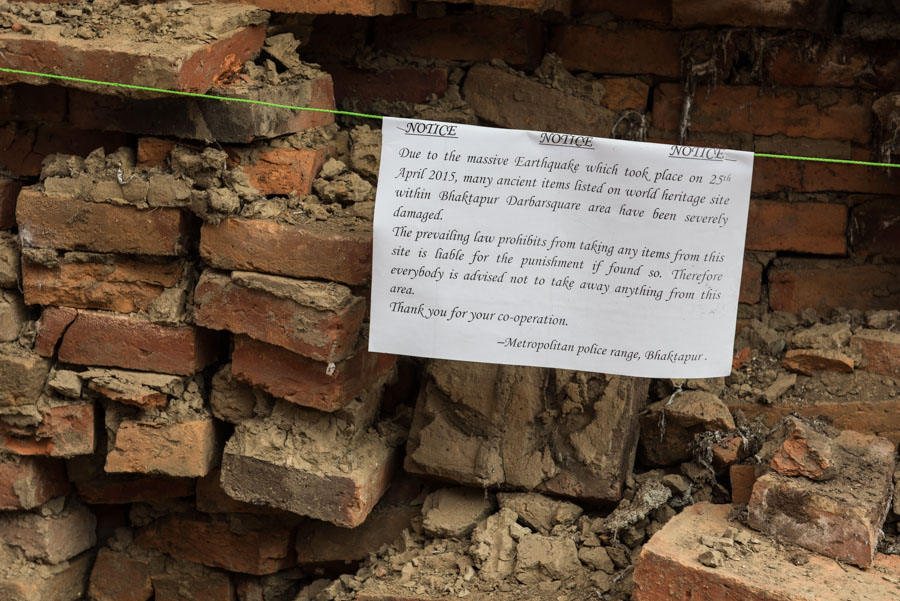 NOTICE NOTICE NOTICE
Due to the massive Earthquake which took place on 25th
April 2015, many ancient items listed on world heritage site
within Bhaktapur Darbarsquare area have been severely
damaged.
The prevailing law prohibits from taking any items from this
site is liable for the punishment if found so. Therefore
everybody is advised not to take away anything from this
area.
Thank you for your co-operation.
–Metropolitan police range, Bhaktapur .